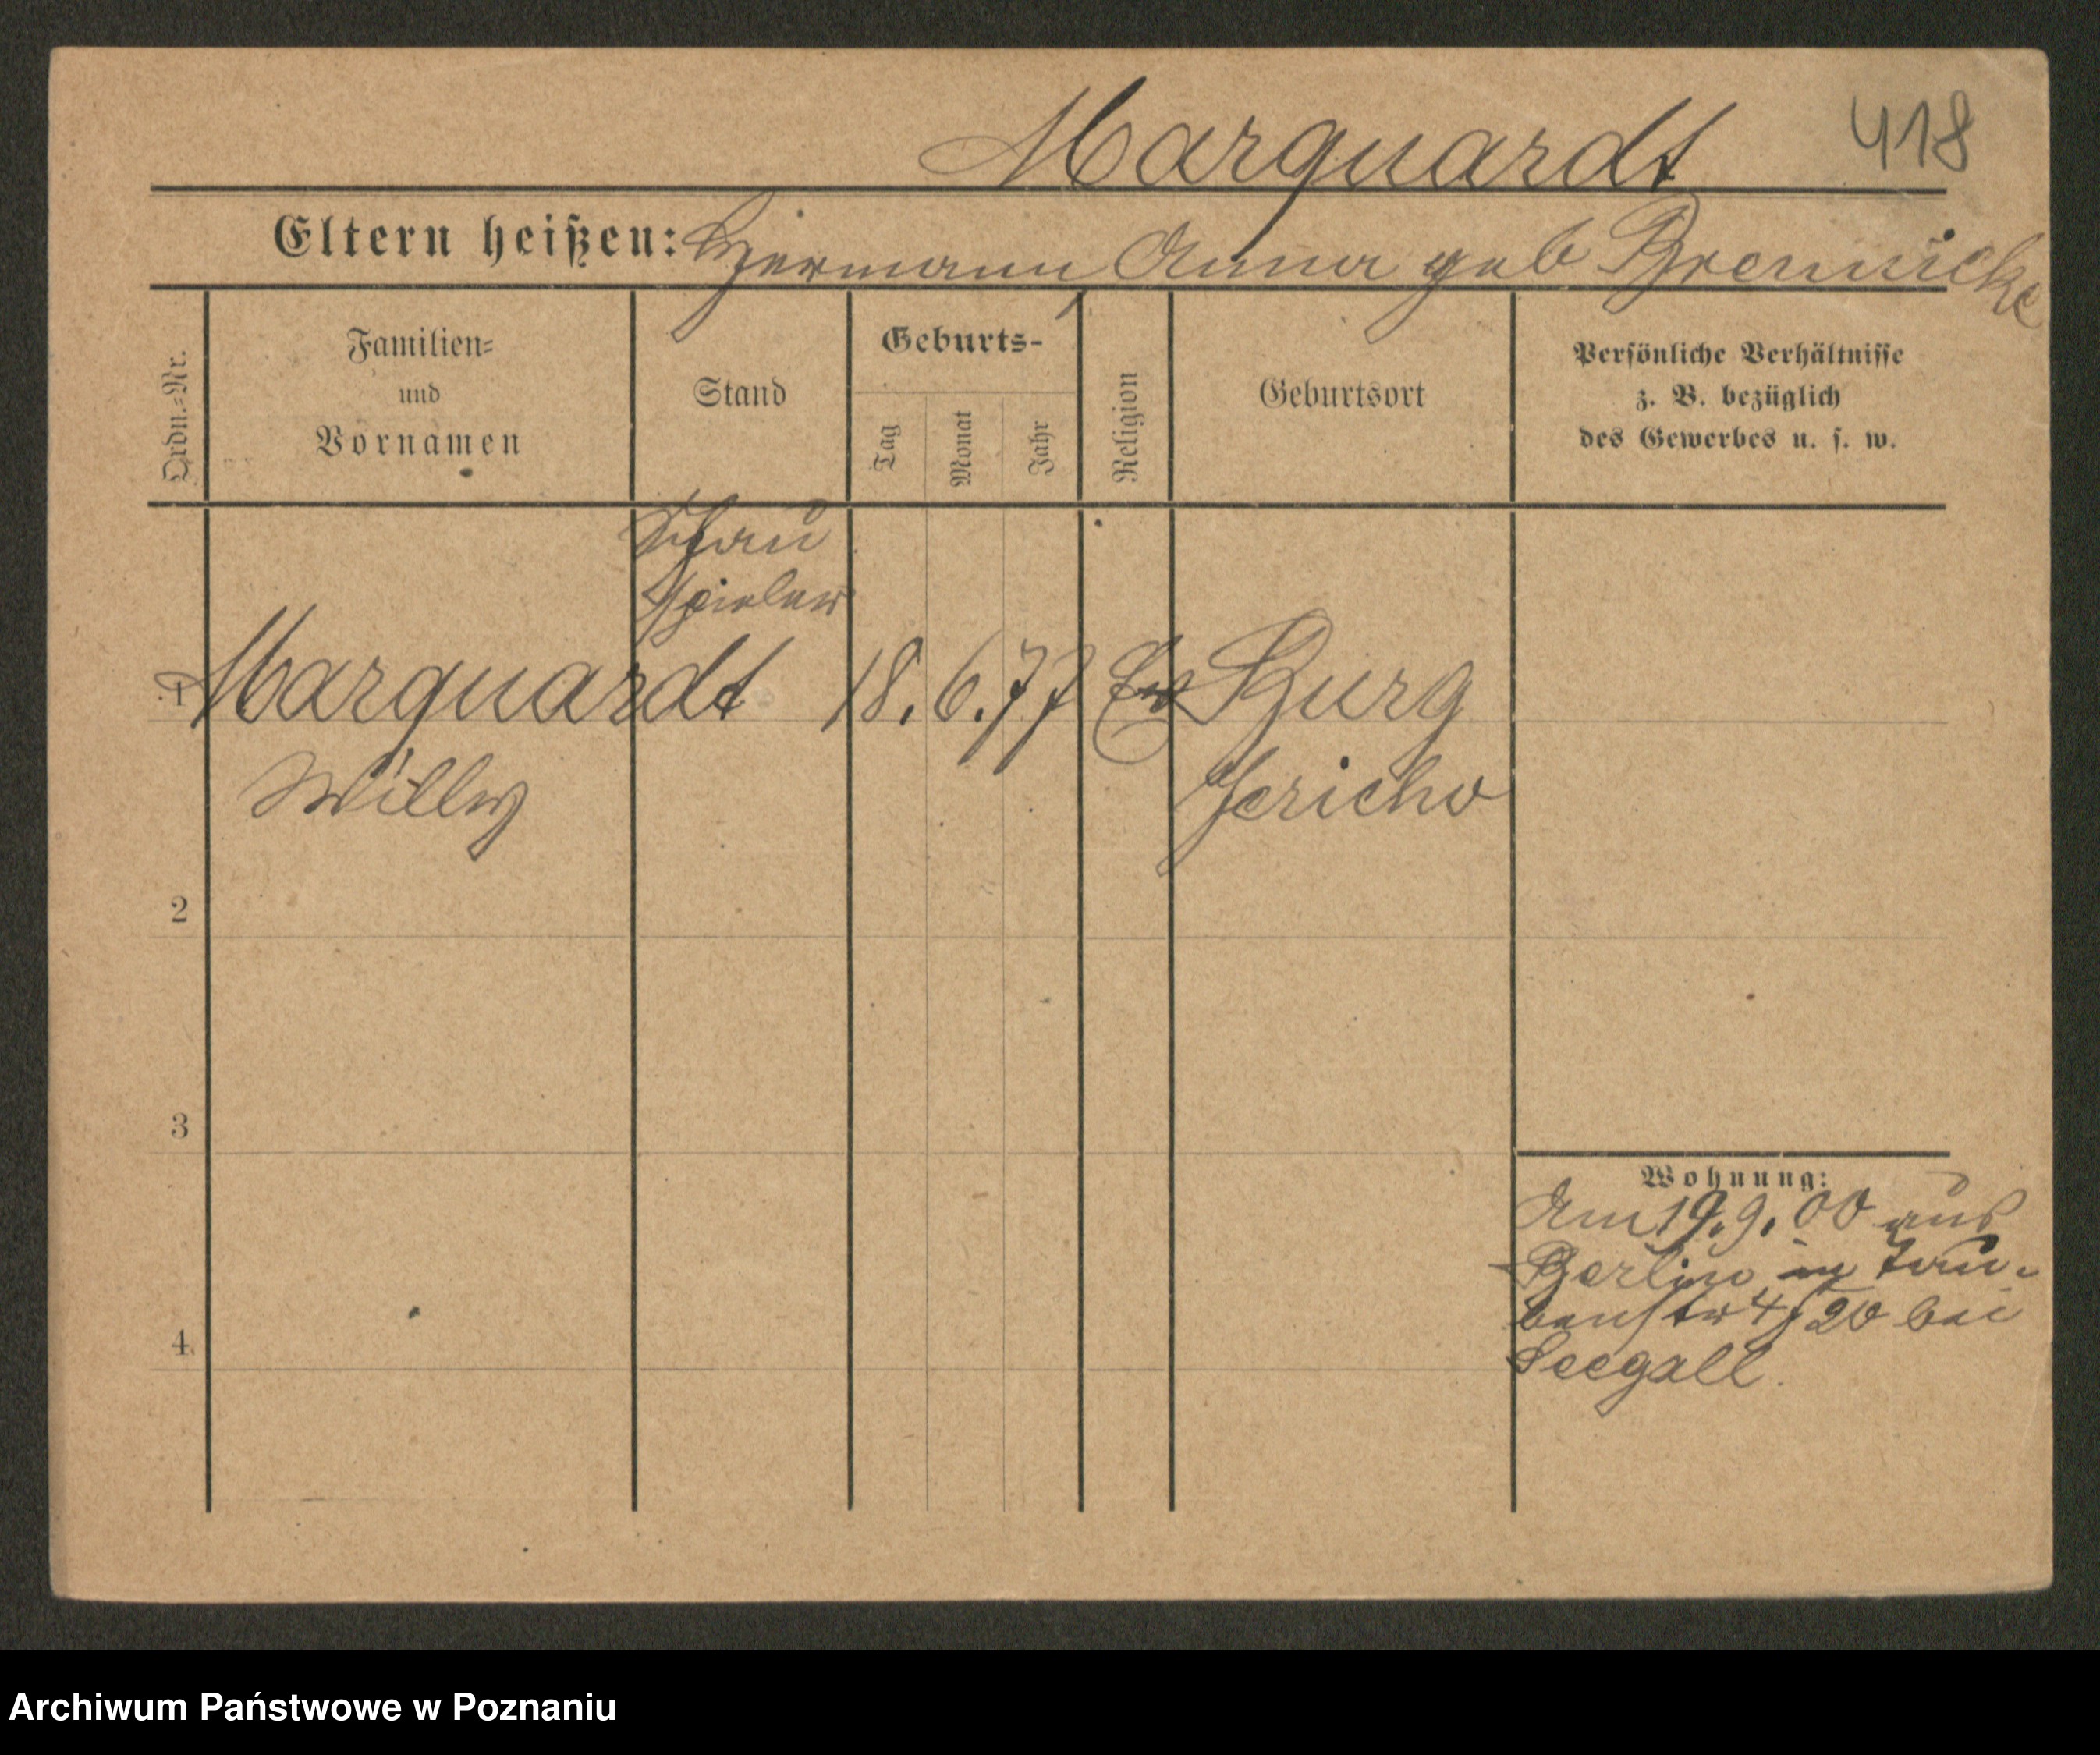 Marquardt 418
Eltern heißen: Hermann, Anna geb Brennicke
Ordn.=Nr.
Familien=
und
Vornamen
Stand
Geburts-
Tag
Monat
Jahr
Religion
Geburtsort
Persönliche Verhältnisse
z. B. bezüglich
des Gewerbes u. s. w.
Schau
spieler
1 Marquardt 18. 6. 77 Ev Burg
Willy Jericho
2
3
4
Wohnung:
Am 19. 9. 00 aus
Berlin in Tau-
benstr 4/20 bei
Seegall.
Archiwum Państwowe w Poznaniu